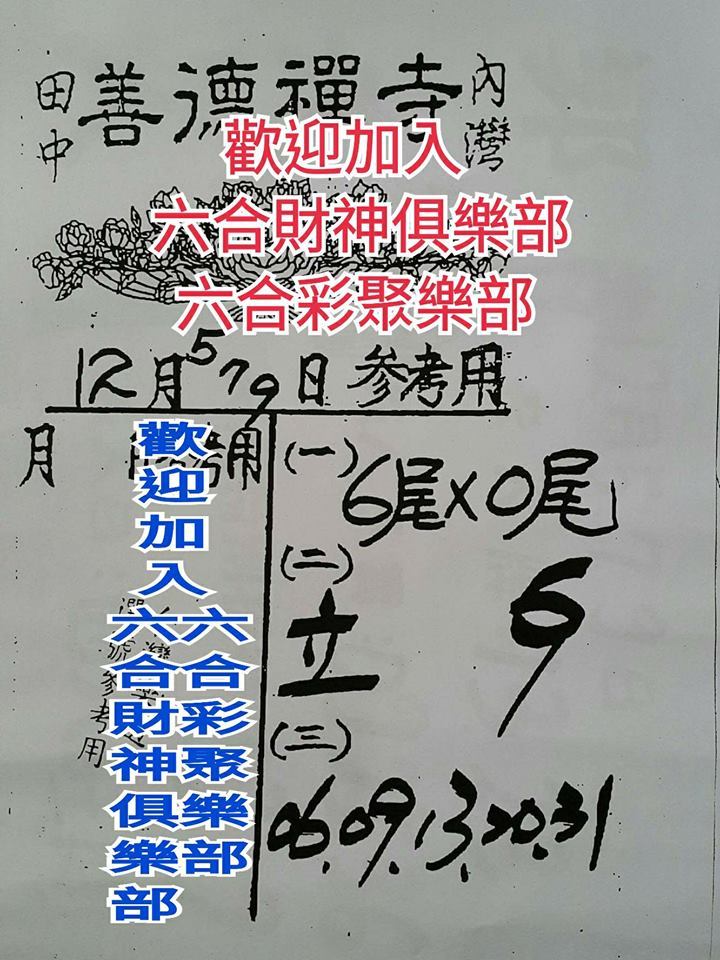 田中 善德禪寺 內灣
歡迎加入
六合財神俱樂部
六合彩聚樂部
12月5 7 9日 參考用
月 用
歡迎加入六合財神俱樂部
六合彩聚樂部
參考用
(一)
6尾X0尾
(二)
立
(三)
06.09.13.20.31